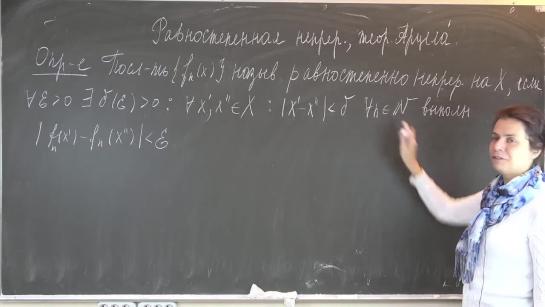 Равностепенная непрер., теор. Арцела́.
Опр-е Посл-ть {fₙ(x)} назыв. равностепенно непрер на X, если
∀ε>0 ∃ δ(ε)>0 : ∀x', x''∈X : |x'-x''|<δ ∀n∈N выполн
|fₙ(x')-fₙ(x'')|<ε